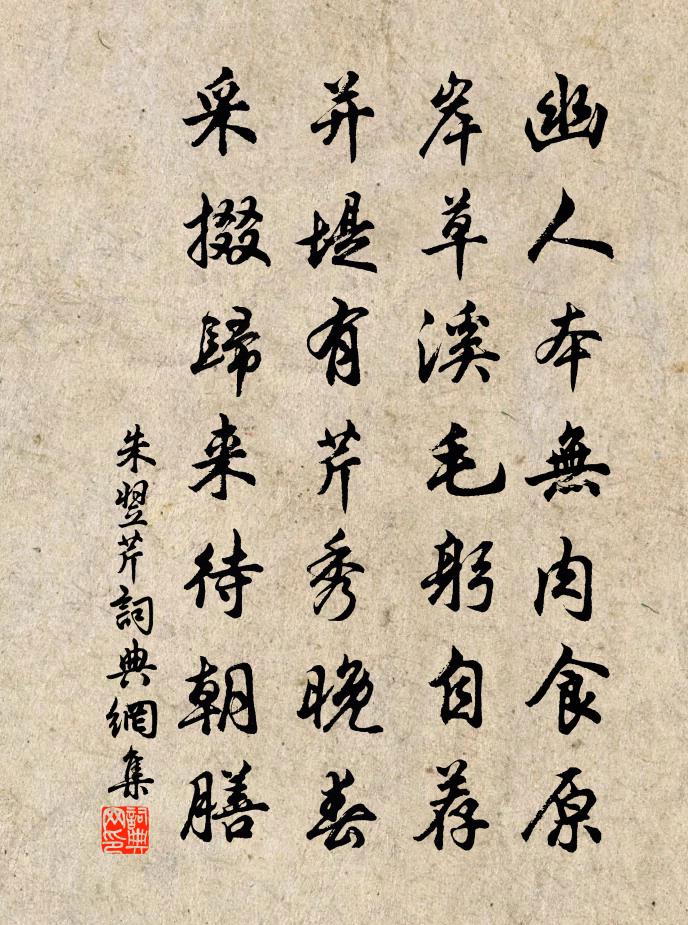 幽人本無肉食原
岸草溪毛躬自荐
并堤有芹秀晚春
采掇歸来待朝膳
朱翌芹詞典網集
詞典网印